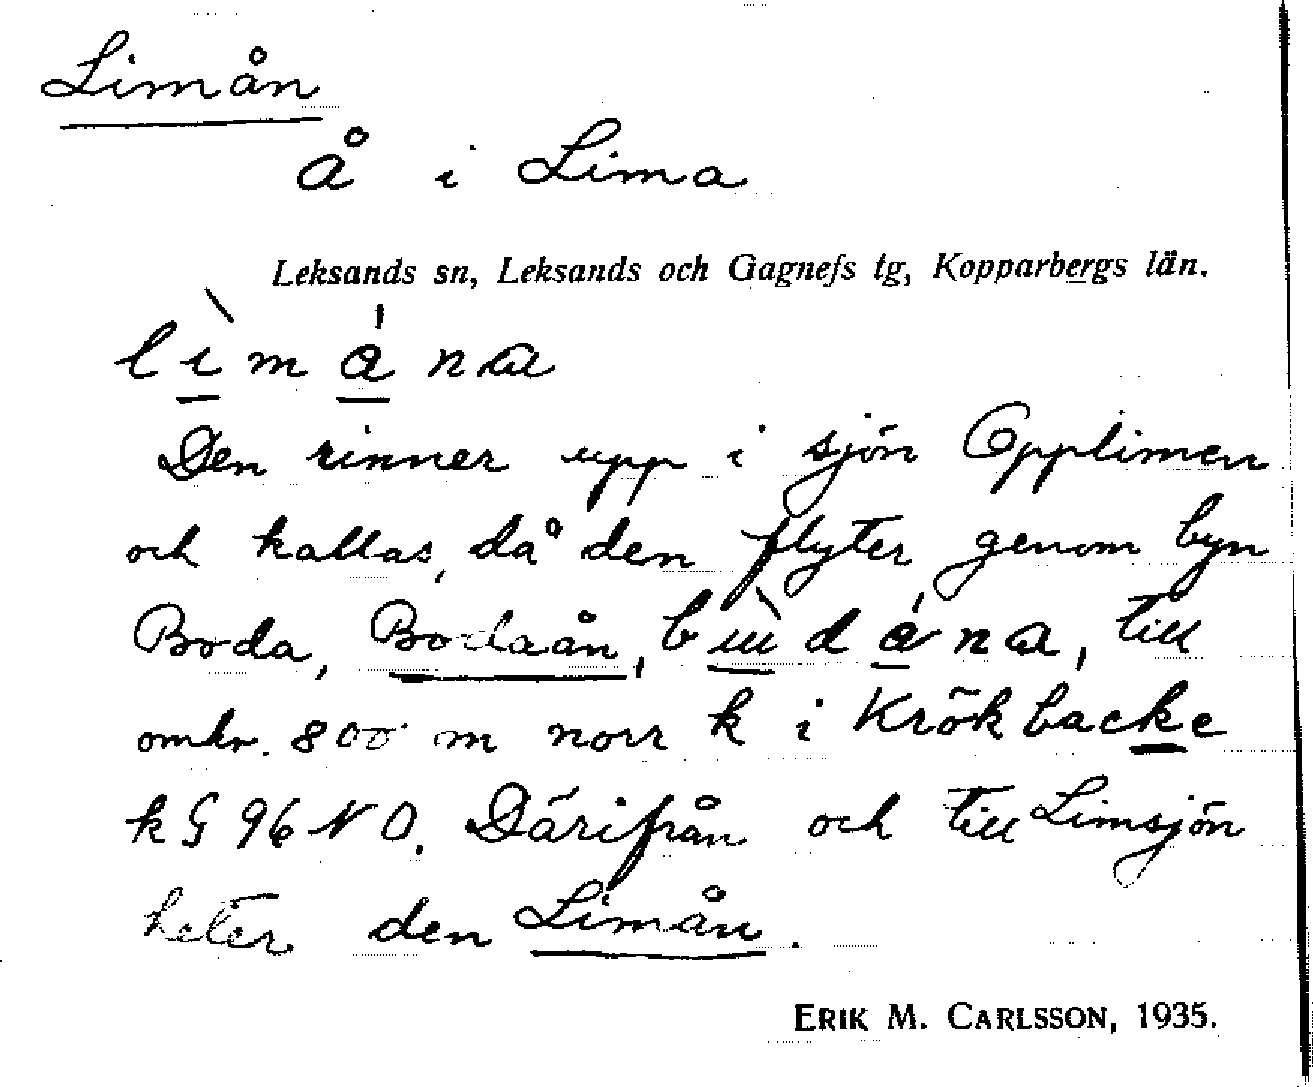 Limån
Å i Lima
Leksands sn, Leksands och Gagnefs tg, Kopparbergs län.
lìmána
Den rinner upp i sjön Opplimen
och kallas, då den flyter genom byn
Boda, Bodaån, till
omkr. 800 m norr k i Krökbacke
k G 96 NO. Därifrån och till Limsjön
heter den Limån.
ERIK M. CARLSSON, 1935.